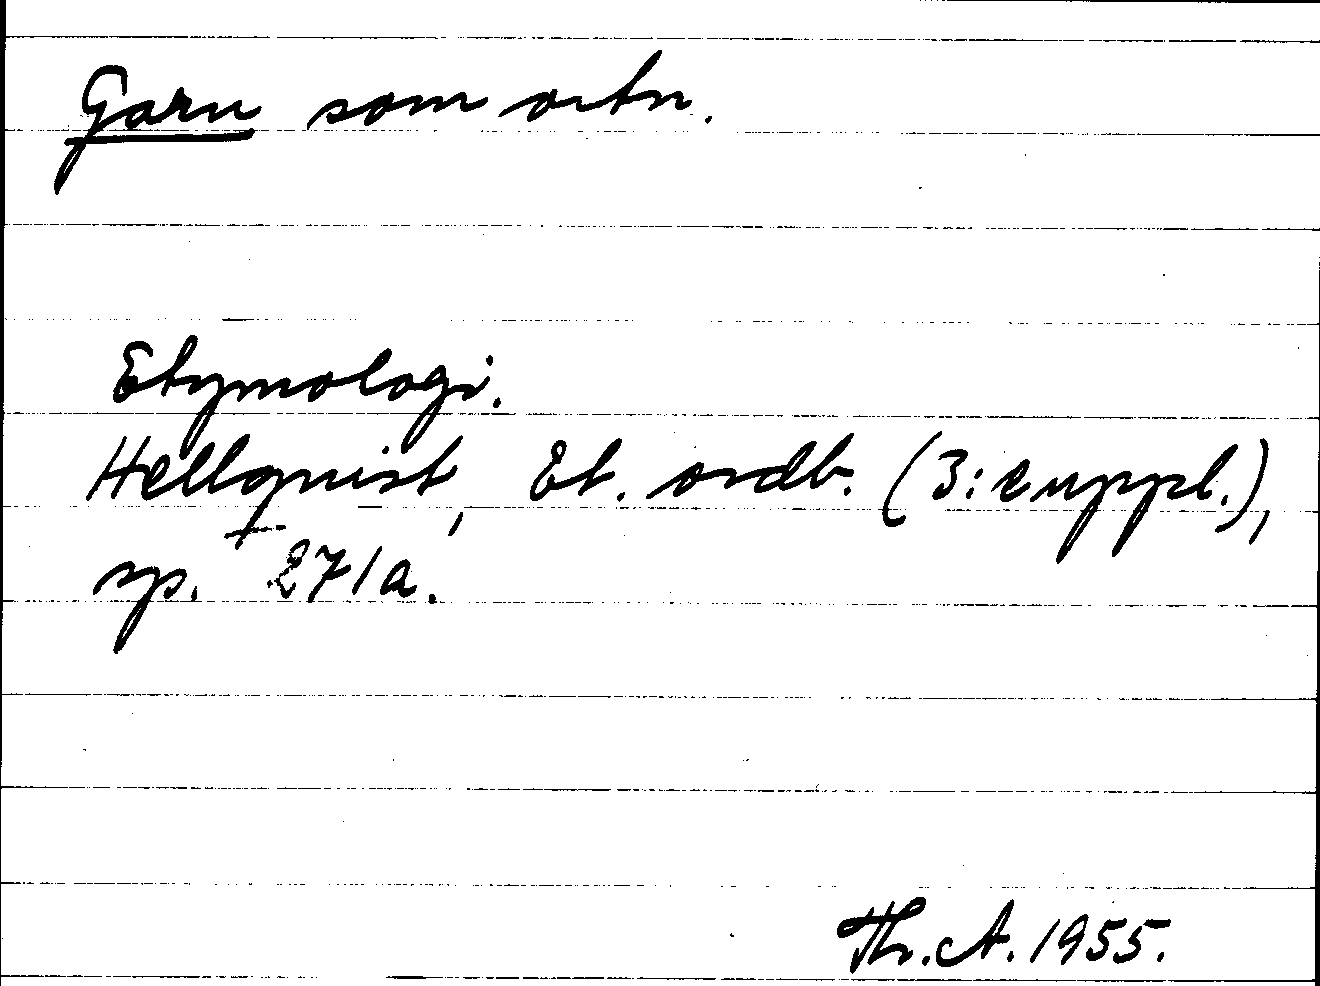 Garn som ortn.
Etymologi.
Hellquist, Et. ordb. (3:e uppl.),
sp. 271a.
Th. A. 1955.